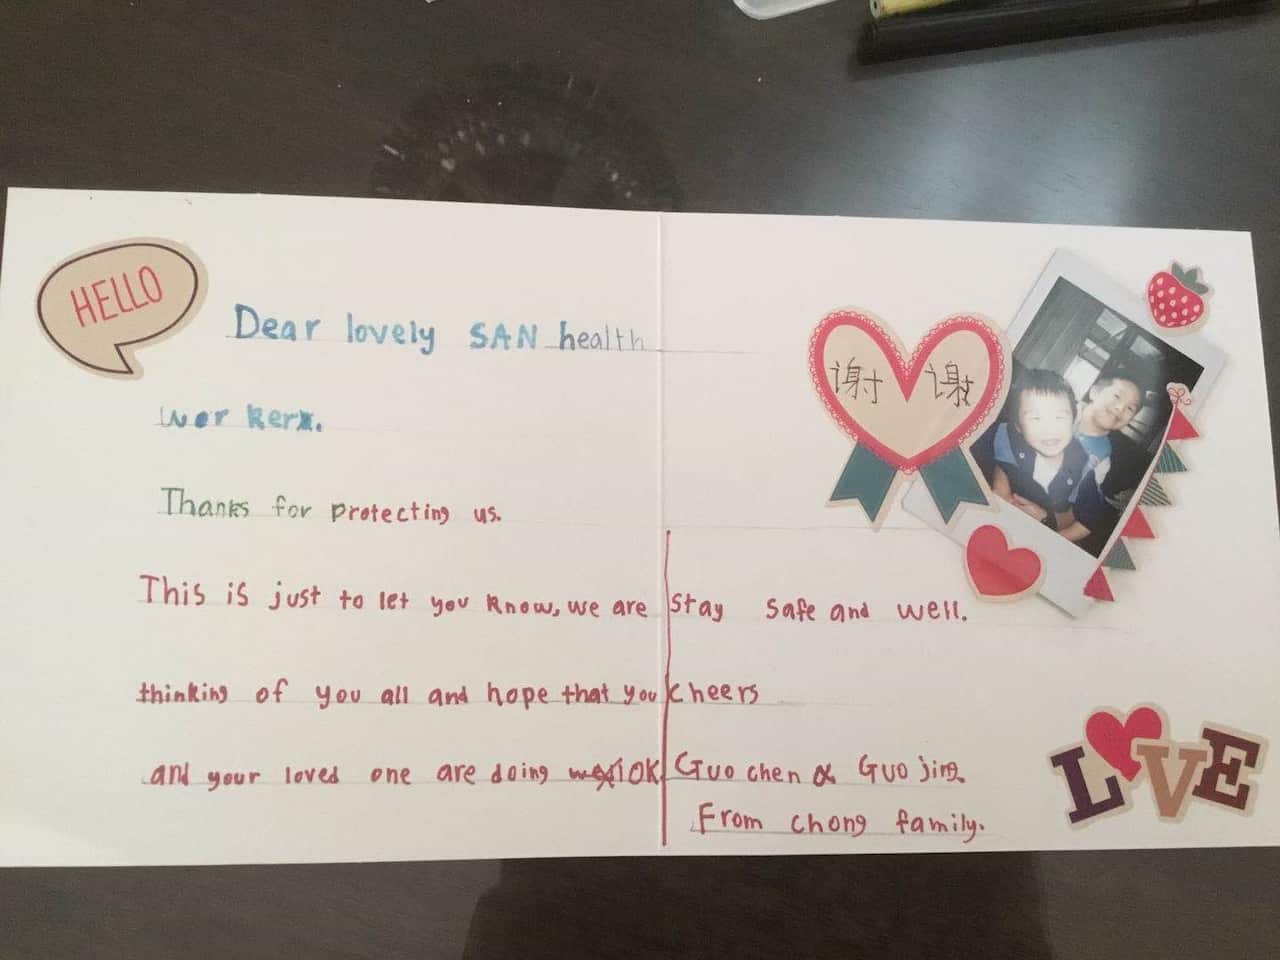 HELLO
Dear lovely SAN health
worker.
Thanks for protecting us.
This is just to let you know, we are
thinking of you all and hope that you
and your loved one are doing OK
谢 谢
stay safe and well.
cheers
Guo chen & Guo jing
From chong family.
LOVE